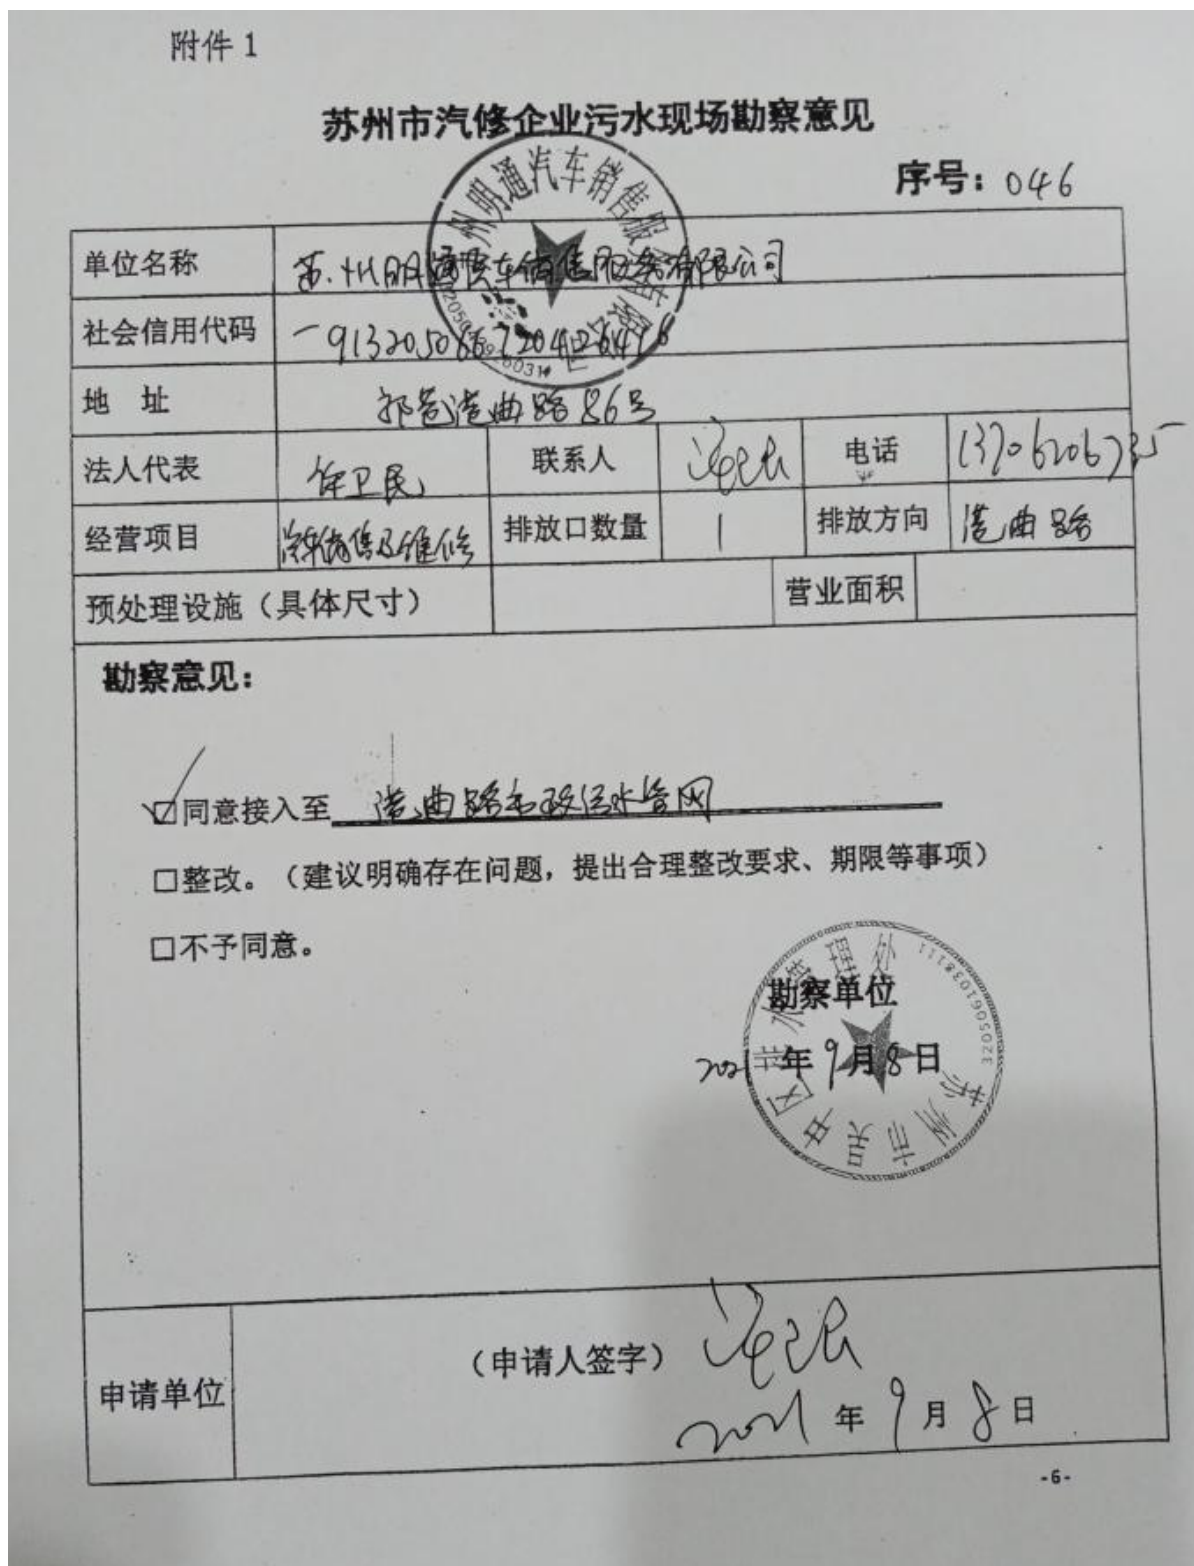 附件 1
苏州市汽修企业污水现场勘察意见
序号: 046
单位名称 苏州明通汽车销售服务有限公司
社会信用代码
地 址 郭巷港曲路86号
法人代表 许卫民 联系人 电话 13706206735
经营项目 汽车销售及维修 排放口数量 1 排放方向 港曲路
预处理设施(具体尺寸) 营业面积
勘察意见:
☑同意接入至 港曲路市政污水管网
□整改。(建议明确存在问题,提出合理整改要求、期限等事项)
□不予同意。
勘察单位
2021年9月8日
苏州市吴中区排水管理处
3205061038111
(申请人签字)
申请单位
2021年9月8日
-6-